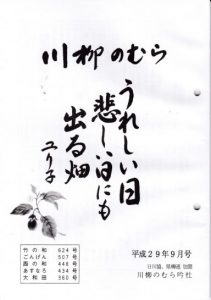 川柳のむら
うれしい日
悲しい日にも
出る畑
ユリ子
竹の和 624号
ごんげん 507号
西の和 448号
あすなろ 434号
大和田 360号
平成29年9月号
日川協、県柳連 加盟
川柳のむら吟社